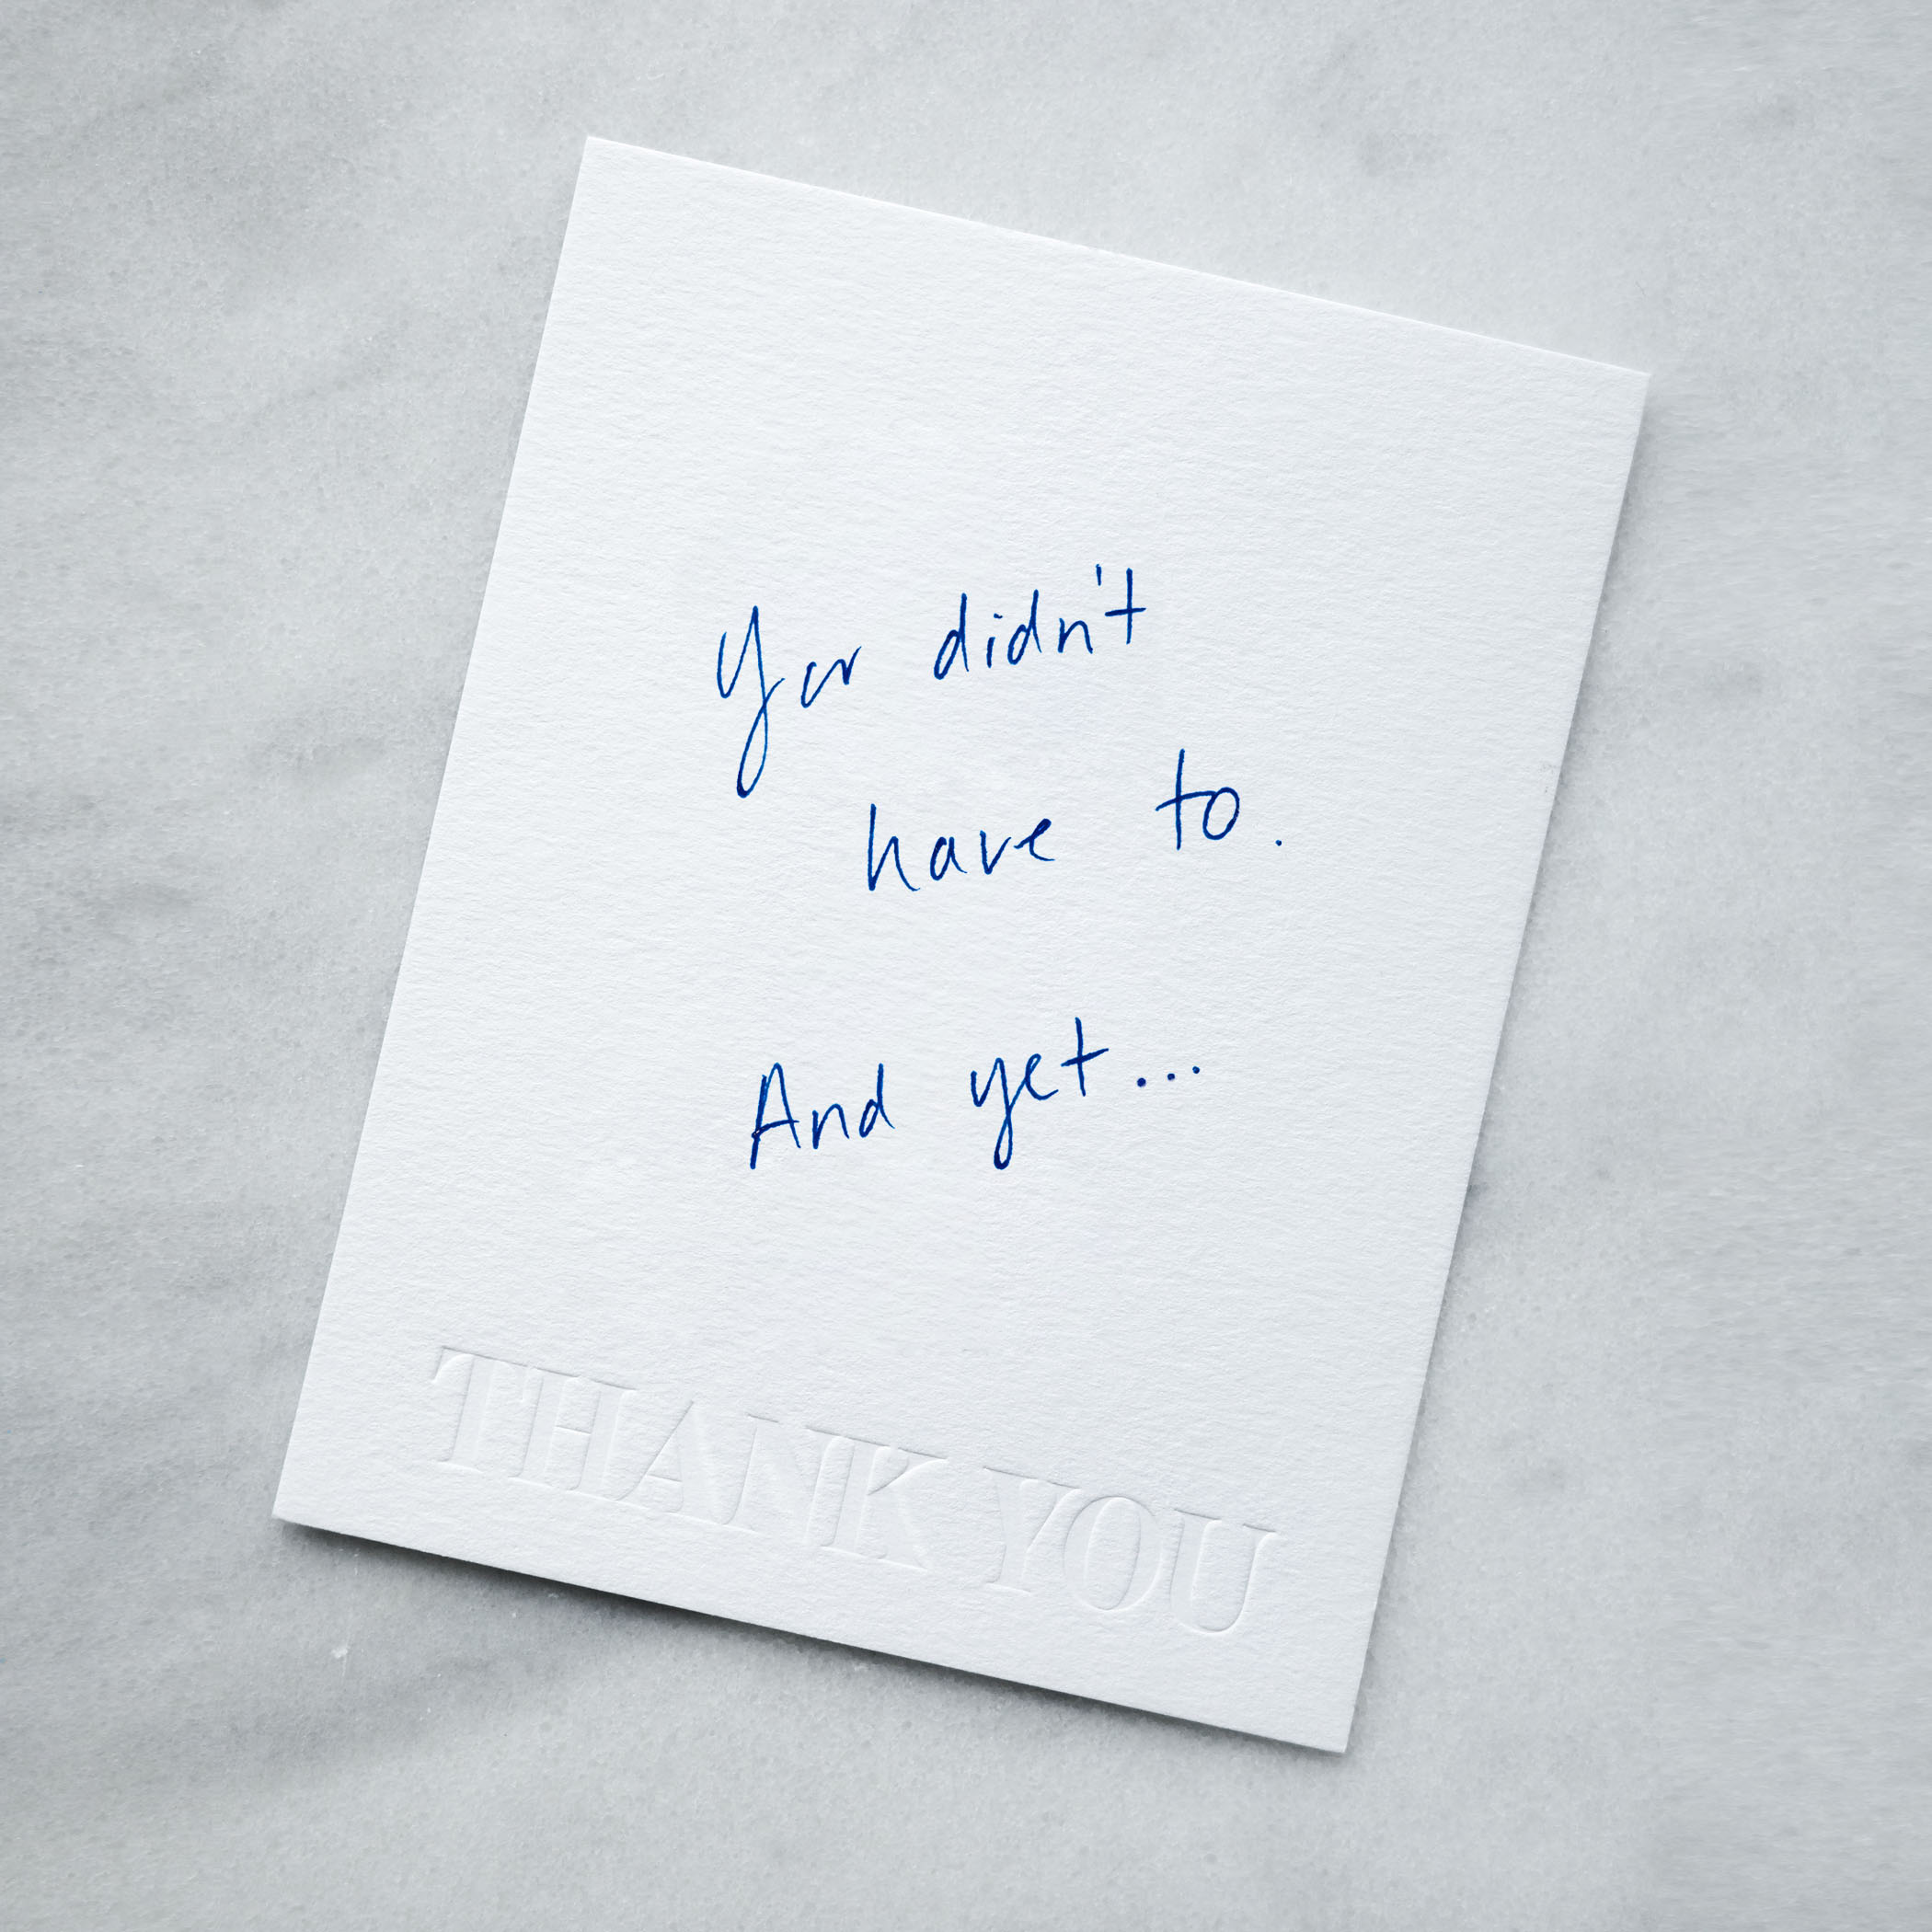 You didn't
have to.
And yet...
THANK YOU